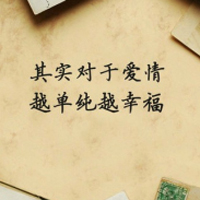 其实对于爱情
越单纯越幸福